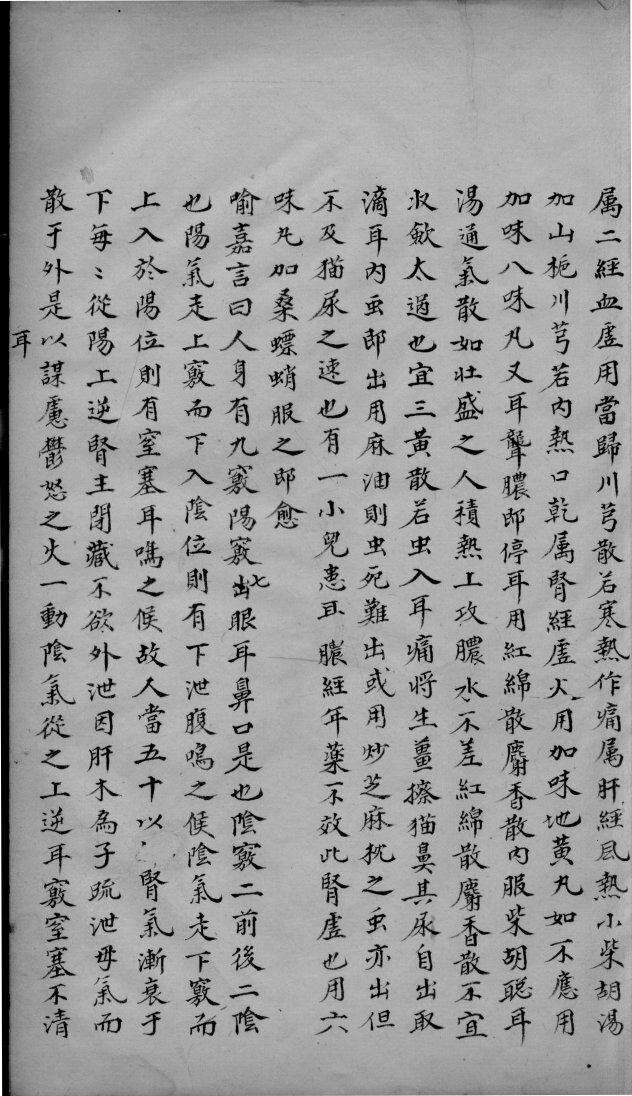 属二經血虛用當歸川芎散若寒熱作痛属肝經風熱小柴胡湯
加山梔川芎若内熱口乾属腎經虛火用加味地黄丸如不應用
加味八味丸又耳聾膿即停耳用紅綿散麝香散内服柴胡聪耳
湯通氣散如壮盛之人積熱上攻膿水不差紅綿散麝香散不宜
收歛太過也宜三黄散若虫入耳痛将生薑擦猫鼻其尿自出取
滴耳内虫即出用麻油則虫死難出或用炒芝麻枕之虫亦出但
不及猫尿之速也有一小兒患耳膿經年薬不效此腎虛也用六
味丸加桑螵蛸服之即愈
喻嘉言曰人身有九竅陽竅七出眼耳鼻口是也陰竅二前後二陰
也陽氣走上竅而下入陰位則有下泄腹鳴之候陰氣走下竅而
上入於陽位則有窒塞耳鳴之候故人當五十以〻腎氣漸衰于
下每〻從陽上逆腎主閉藏不欲外泄因肝木為子疏泄母氣而
散于外是以謀慮鬱怒之火一動陰氣從之上逆耳竅窒塞不清
耳